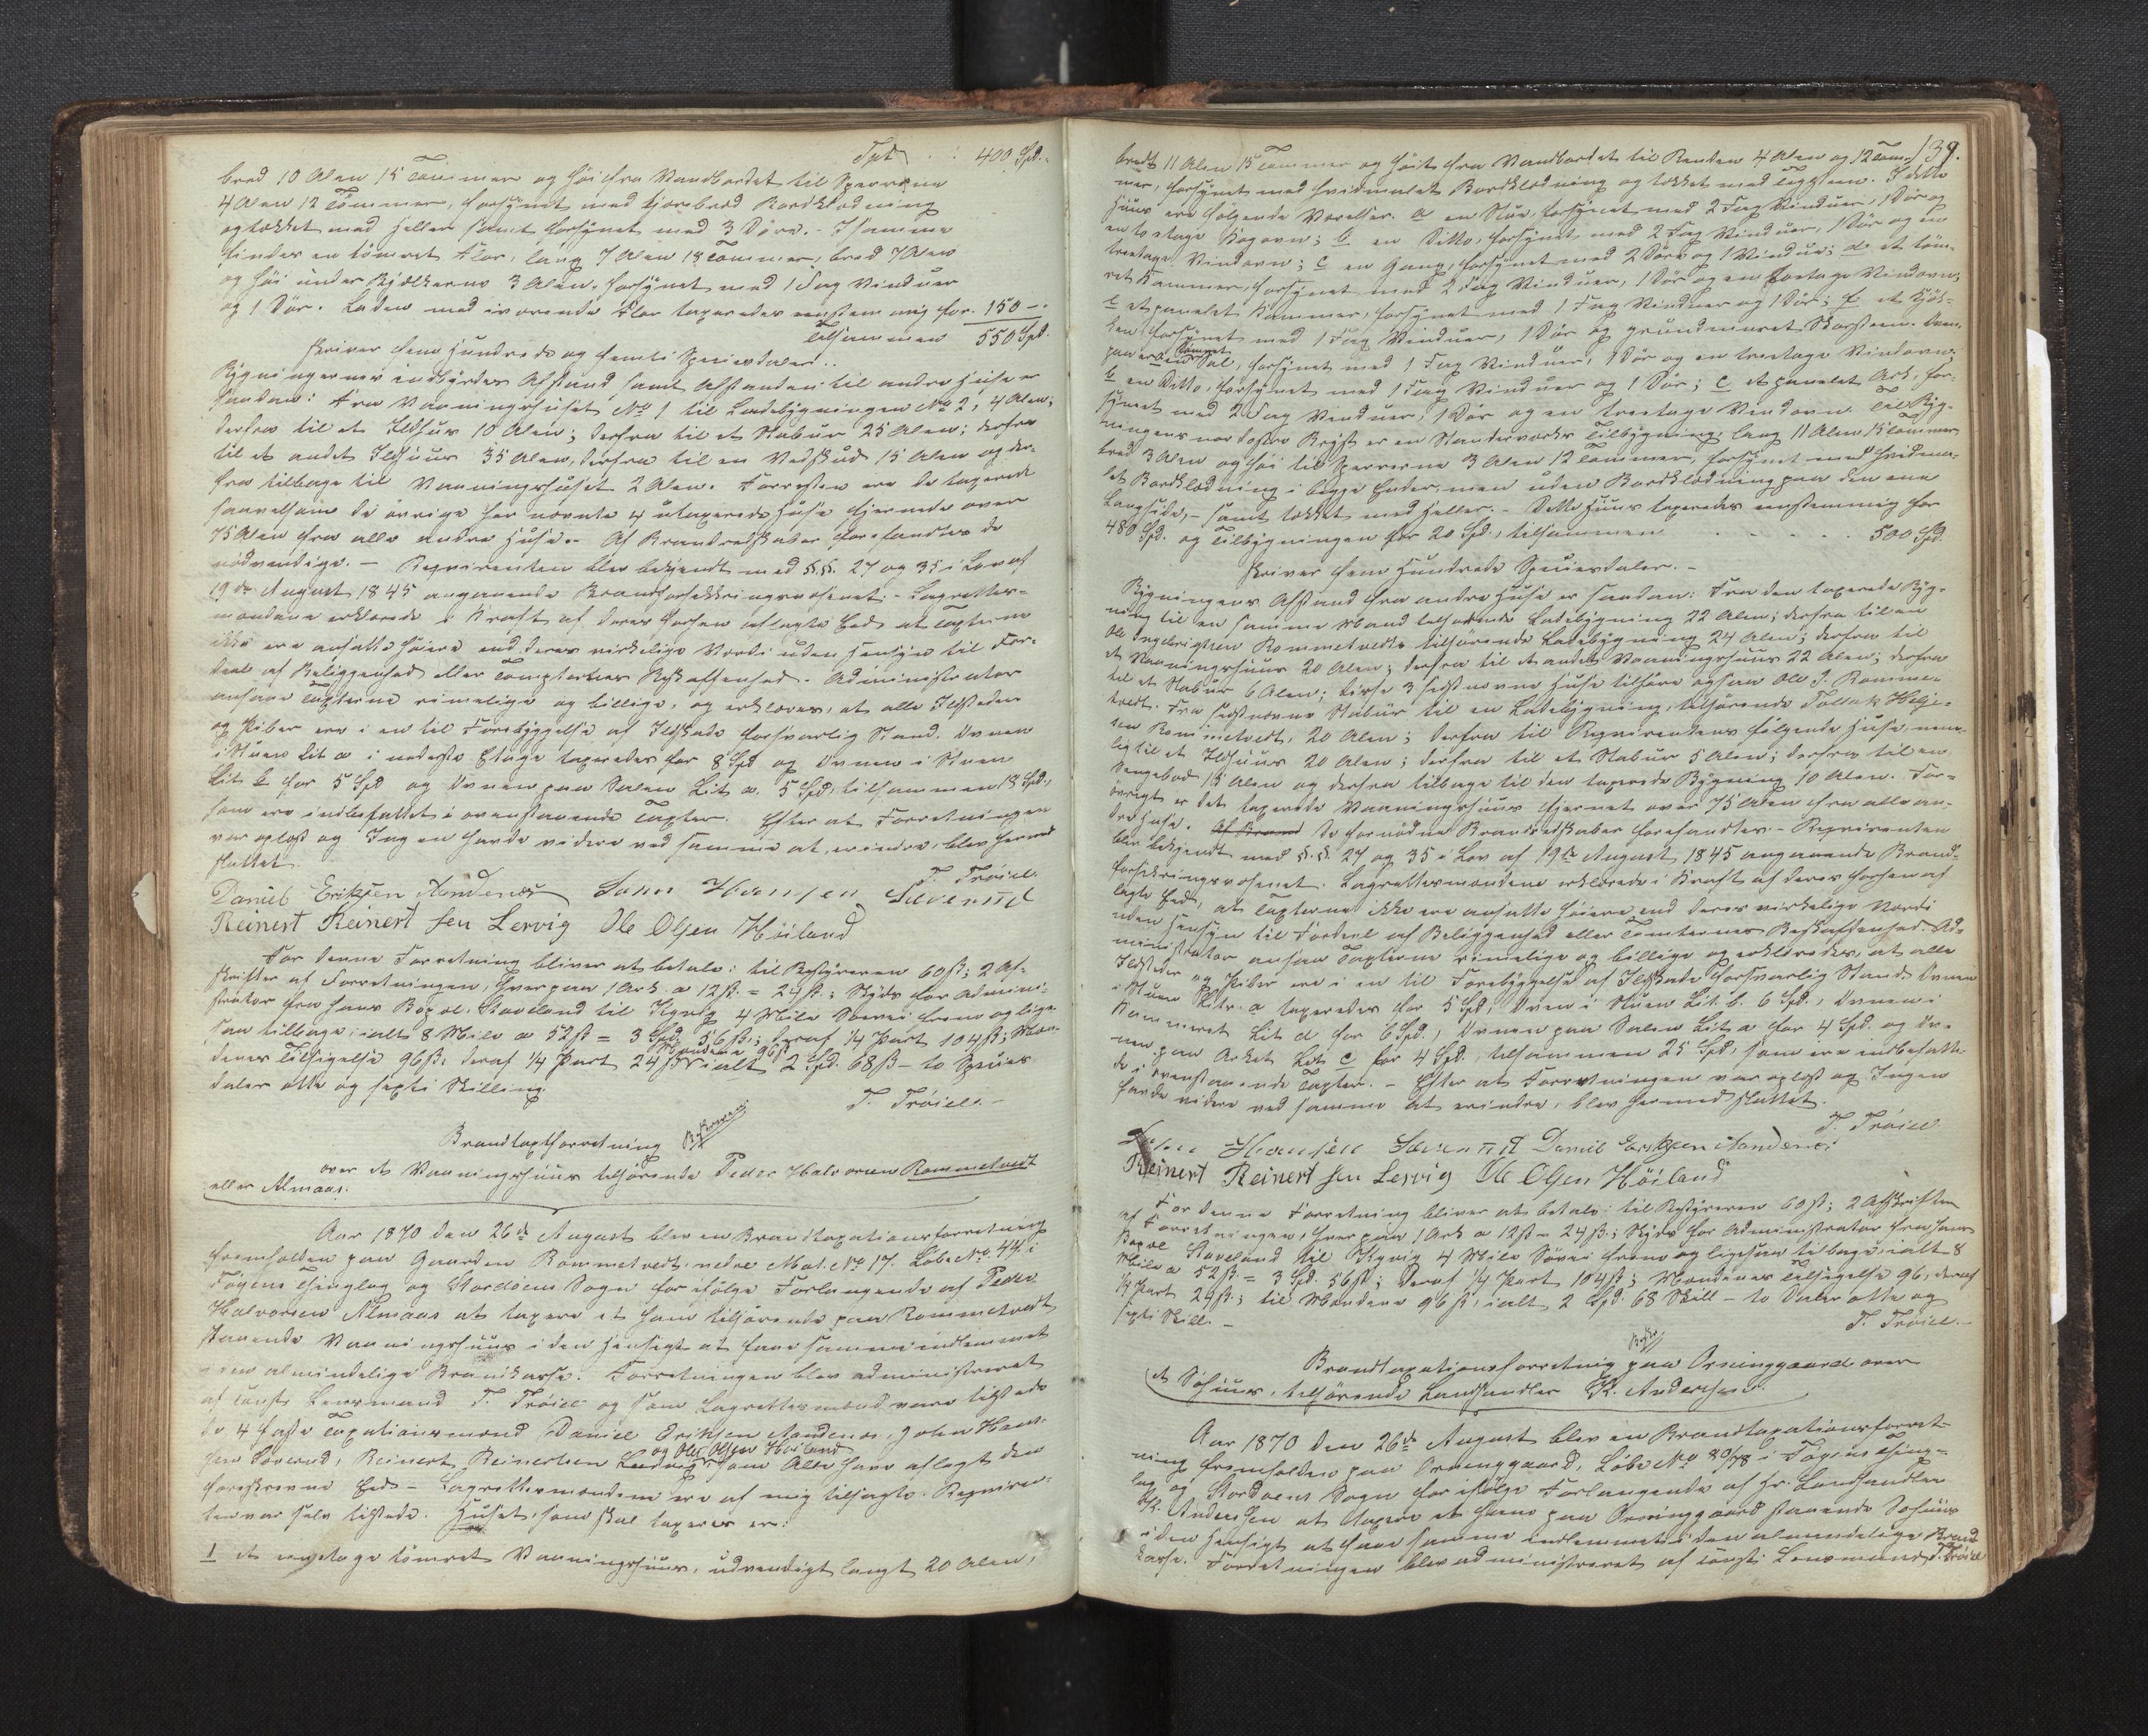 Spd. . : 400 Spd.
bred 10 Alen 15 Tommer og høi fra Vandbordet til Sperrene
4 Alen 12 Tommer, forsynet med tjærebred Bordklædning
og tækket med Heller samt forsynet med 3 Døre. - I samme
findes en tømret Flor, lang 7 Alen 18 Tommer, bred 7 Alen
og høi under Bjælkerne 3 Alen, forsynet med 1 Fag Vinduer
og 1 Dør. Laden med iværende Flor taxeredes eenstemmig for. 150 -
Tilsammen 550 Spd.
skriver fem Hundrede og femti Speciesdaler..
Bygningernes indbyrdes Afstand samt Afstanden til andre Huse er
saadan: Fra Vaaningshuset No 1 til Ladebygningen No 2, 4 Alen;
derfra til et Ildhus 10 Alen; derfra til et Stabur 25 Alen; derfra
til et andet Ildhuus 35 Alen, derfra til en Vedskud 15 Alen og der-
fra tilbage til Vaaningshuset 2 Alen. Forresten ere de taxerede
saavelsom de øvrige her nævnte 4 utaxerede Huse fjernede over
75 Alen fra alle andre Huse. - Af Brandredskaber forefandtes de
nødvendige. - Reqvirenten blev bekjendt med §.§. 27 og 35 i Lov af
19de August 1845 angaaende Brandforsikkringsvæsenet. - Lagrettes-
mændene erklærede i Kraft af deres forhen aflagte Eed at Taxterne
ikke ere ansatte høiere end deres virkelige Værdi uden Hensyn til For-
deel af Beliggenhed eller Tompternes Beskaffenhed. Administrator
ansaae Taxterne rimelige og billige, og erklærer, at alle Ildsteder
og Piber ere i en til Forebyggelse af Ildskade forsvarlig Stand. Ovnen
i Stuen Lit a i nederste Etage taxeredes for 8 Spd og Ovnen i Stuen
Lit b for 5 Spd og Ovnen paa Salen Lit a. 5 Spd, tilsammen 18 Spd,
som ere indbefattet i ovenstaaende Taxter. Efter at Forretningen
var oplæst og Ingen havde videre ved samme at erindre, blev hermed
sluttet.
T. Trøien.
Daniel Eriksen Aandenæs John Hansen Sæverud
Reinert Reinertsen Lervig Ole Olsen Høiland
For denne Forretning bliver at betale: til Bestyreren 60 ß; 2 Af-
skrifter af Forretningen, hver paa 1 Ark a 12 ß = 24 ß; Skyds for Admini-
strator fra hans Bopæl Staveland til 4 Mile Søvei frem og lige-
saa tilbage, ialt 8 Mile a 52 ß = 3 Spd. 56 ß; deraf 1/4 Part 104 ß; Mæn-
denes Tilsigelse 96 ß, deraf 1/4 Part 24 ß Mændene 96 ß ialt 2 Spd. 68 ß - to Species-
daler otte og sexti Skilling.
T. Trøien. -
Brandtaxtforretning
over et Vaaningshuus tilhørende Peder Halvorsen Rommetvedt
eller Almaas.
Aar 1870 den 26de August blev en Brandtaxationsforretning
fremholden paa Gaarden Rommetvedt nedre Mat. No 17. Løbe No. 44 i
Føyens Thinglag og Stordøens Sogn for ifølge Forlangende af Peder
Halvorsen Almaas at taxere et ham tilhørende paa Rommetvedt
staaende Vaaningshuus i den Hensigt at faae samme indlemmet
i den almindelige Brandkasse. Forretningen blev administreret
af const. Lensmand T. Trøien og som Lagrettesmænd vare tilstede
de 4 faste Taxationsmænd Daniel Eriksen Aandenæs, John Han-
sen Sæverud, Reinert Reinertsen Lervig og Ole Olsen Høiland som Alle have aflagt den
foreskrevne Eed. - Lagrettesmændene ere af mig tilsagte. Reqviren-
ten var selv tilstede. Huset som skal taxeres er:
1 et eenetages tømret Vaaningshuus, udvendigt langt 20 Alen,
139.
bredt 11 Alen 15 Tommer og høit fra Vandbordet til Renden 4 Alen og 12 Tom-
mer, forsynet med hvidmalet Bordklædning og tækket med Teglsteen. I dette
Huus ere følgende Værelser. a en Stue, forsynet med 2 Fag Vinduer, 1 Dør og
en to etage Kogovn; b en Ditto, forsynet med 2 Fag Vinduer, 1 Dør og en
treetages Vindovn; c en Gang, forsynet med 2 Døre og 1 Vindue; d et tøm-
ret Kammer, forsynet med 2 Fag Vinduer, 1 Dør og en toetages Vindovn;
e et panelet Kammer, forsynet med 1 Fag Vinduer og 1 Dør; f. et Kjøk-
ken forsynet med 1 Fag Vinduer, 1 Dør og grundmuret Skorsteen. Oven-
paa er a en tømret Sal, forsynet med 1 Fag Vinduer, 1 Dør og en treetages Vindovn;
b en Ditto, forsynet med 1 Fag Vinduer og 1 Dør; c et panelet Ark, for-
synet med 2 Fag Vinduer, 1 Dør og en treetages Vindovn. Til Byg-
ningens nordostre Bryst er en Standerværks Tilbygning, lang 11 Alen 15 Tommer,
bred 3 Alen og høi til Sperrerne 3 Alen 12 Tommer, forsynet med hvidma-
let Bordklædning i begge Ender, men uden Bordklædning paa den ene
Langside, - samt tækket med Heller. - Dette Huus taxeredes eenstemmig for
480 Spd. og Tilbygningen for 20 Spd., tilsammen . . . . . 500 Spd.
skriver fem Hundrede Speciesdaler. -
Bygningens Afstand fra andre Huse er saadan: Fra den taxerede Byg-
ning til en samme Mand tilhørende Ladebygning 22 Alen; derfra til en
Ole Ingebrigtsen Rommetvedts tilhørende Ladebygning 24 Alen; derfra til
et Vaaningshuus 20 Alen; derfra til et andet Vaaningshuus 22 Alen; derfra
til et Stabur 6 Alen; disse 3 sidstnævne Huse tilhøre ogsaa Ole I. Romme-
tvedt. Fra sidstnævne Stabur til en Ladebygning, tilhørende Tollak Helje-
sen Rommetvedt, 20 Alen; derfra til Reqvirentens følgende Huse, nem-
lig til et Ildhuus 20 Alen; derfra til et Stabur 5 Alen; derfra til en
Sengebod 15 Alen og derfra tilbage til den taxerede Bygning 10 Alen. For-
øvrigt er det taxerede Vaaningshuus fjernet over 75 Alen fra alle an-
dre Huse. Af Brand De fornødne Brandredskaber forefandtes. - Reqvirenten
blev bekjendt med §.§. 27 og 35 i Lov af 19de August 1845 angaaende Brand-
forsikringsvæsenet. Lagrettesmændene erklærede i Kraft af deres forhen af-
lagte Eed, at Taxterne ikke ere ansatte høiere end deres virkelige Værdi
uden Hensyn til Fordeel af Beliggenhed eller Tomternes Beskaffenhed. Ad-
ministrator ansaa Taxterne rimelige og billige og erklæredes, at alle
Ildsteder og Piber ere i en til Forebyggelse af Ildskade forsvarlig Stand. Ovnen
i Stuen Litr. a taxeredes for 5 Spd, Ovnen i Stuen Lit. b. 6 Spd., Ovnen i
Kammeret Lit d for 6 Spd., Ovnen paa Salen Lit a for 4 Spd. og Ov-
nen paa Arket Lit c for 4 Spd., tilsammen 25 Spd, som ere indbefatte-
de i ovenstaaende Taxter. - Efter at Forretningen var oplæst og Ingen
havde videre ved samme at erindre, blev hermed sluttet.
T. Trøien
John Hansen Sæverud Daniel Eriksen Aandenæs
Reinert Reinertsen Lervig Ole Olsen Høiland
For denne Forretning bliver at betale: til Bestyreren 60 ß; 2 Afskrifter
af Forretningen, hver paa 1 Ark a 12 ß = 24 ß; Skyds for Administrator fra hans
Bopæl Staveland til 4 Mile Søvei frem og ligesaa tilbage, ialt 8
Mile a 52 ß. = 3 Spd. 56 ß; deraf 1/4 Part 104 ß; Mændenes Tilsigelse 96, deraf
1/4 Part 24 ß; til Mændene 96 ß, ialt 2 Spd. 68 Skill - to Daler otte og
sexti Skill. -
T. Trøien. -
Brandtaxationsforretnig paa Orninggaard over
et Søhuus, tilhørende Landhandler K. Andersen.
Aar 1870 den 26de August blev en Brandtaxationsforret-
ning fremholden paa Orninggaard, Løbe No 20/78 i Føyens Thing-
lag og Stordøens Sogn for ifølge Forlangende af Hr. Landhandler
K. Andersen at taxere et hans paa Orninggaard staaende Søhuus
i den Hensigt at faae samme indlemmet i den almindelige Brand
kasse. Forretningen blev administreret af const. Lensmand T. Trøien